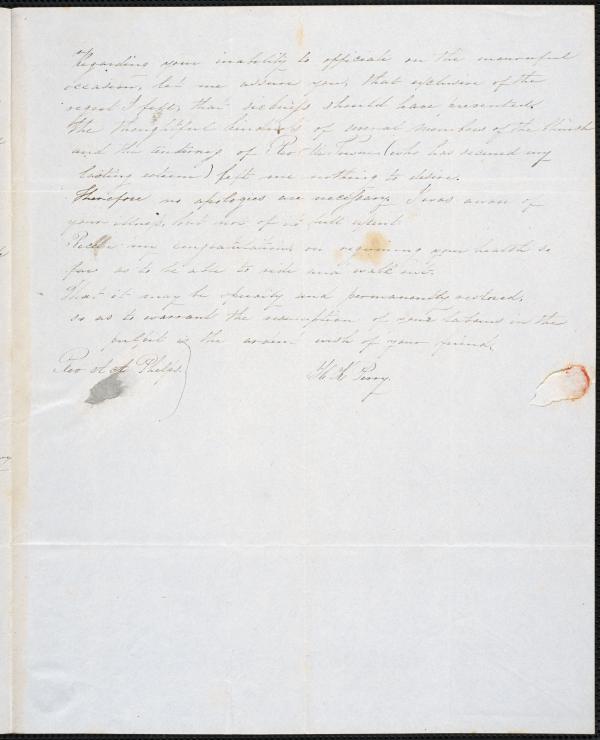 Regarding your inability to officiate on the mournful
occasion, let me assure you, that exclusive of the
regret I felt, that sickness should have prevented
the thoughtful kindness of several members of the Church
and the tenderness of Rev Mr (who has secured my
lasting esteem) left me nothing to desire.
Therefore no apologies are necessary. I was aware of
your illness, but not of its full extent.
Receive my congratulations on regaining your health so
far as to be able to ride and walk out.
That it may be speedily and permanently restored,
so as to warrant the resumption of your Labours in the
pulpit is the ardent wish of your friend,
Rev A A Phelps H K Perry